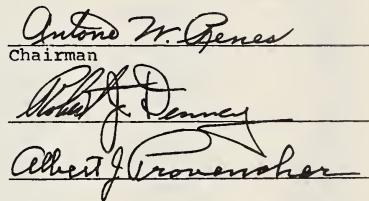 Antone W. Renes
Chairman
Robert J. Denney
Albert J. Provencher